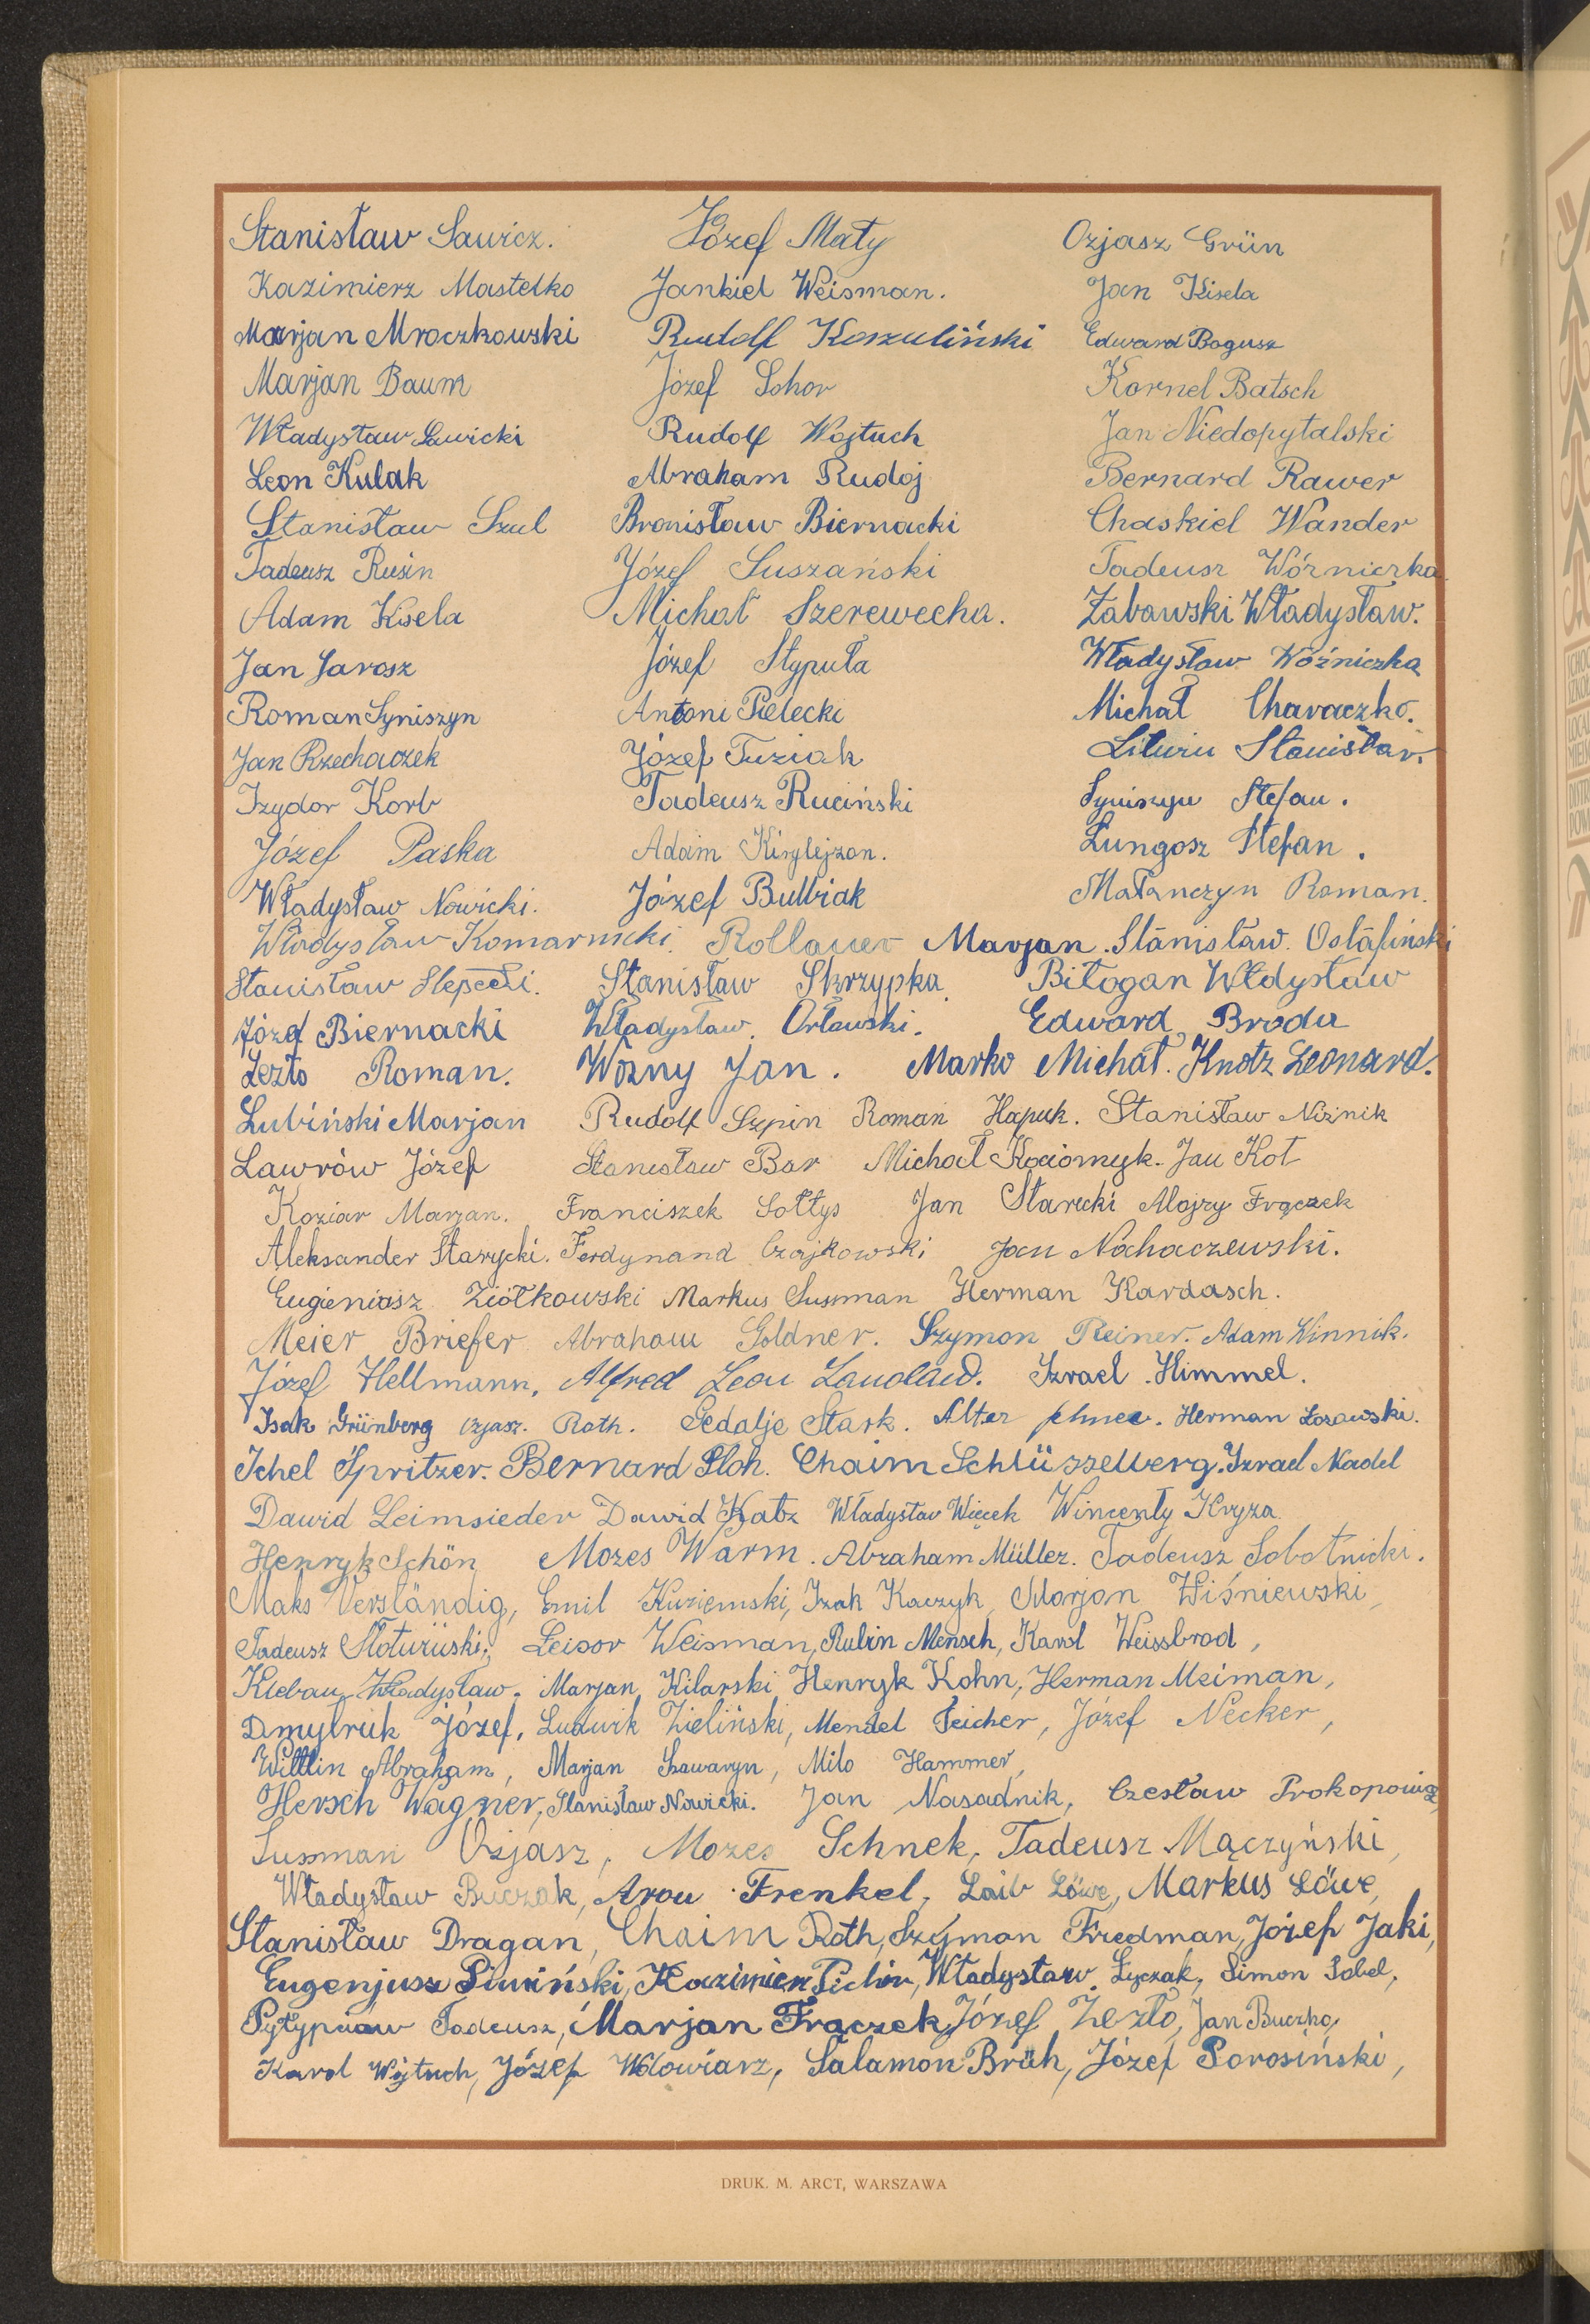 Stanisław Sawicz. Józef Mały Ozjasz Grün
Kazimierz Mastelko Jankiel Weisman. Jan Kisela
Marjan Mroczkowski Rudolf Koszuliński Edward Bogusz
Marjan Baum Józef Schor Kornel Batsch
Władysław Sawicki Rudolf Wojtuch Jan Niedopytalski
Leon Kulak Abraham Rudoj Bernard Rawer
Stanisław Szul Bronisław Biernacki Chaskiel Wander
Tadeusz Rusin Józef Suszański Tadeusz Wóźniczka
Adam Kisela Michał Szerewecha. Żabawski Władysław.
Jan Jarosz Józef Stypuła Władysław Woźniczka
Roman Syniszyn Antoni Pielecki Michał Characzko.
Jan Rzechaczek Józef Tuziak Stanisław.
Izydor Korb Tadeusz Ruciński Syniszyn Stefan.
Józef Paska Adam Lungosz Stefan.
Władysław Nowicki. Józef Bulbiak Małanczyn Roman.
Władysław Komarnicki. Rollauer Marjan. Stanisław. Ostafiński
Stanisław Stanisław Skrzypka. Biłogan Włdysław
Józef Biernacki Władysław. Orławski. Edward Broda
Żezło Roman. Wozny Jan. Marko Michał. Knotz Leonard.
Lubiński Marjan Rudolf Szpin Roman Hapuk. Stanisław Niznik
Lawrów Józef Stanisław Bar Michał Kociomyk. Jan Kot
Koziar Marjan. Franciszek Sołtys Jan Starecki Alojzy Frączek
Aleksander Starycki. Ferdynand Czajkowski Jan Nahaczewski.
Eugieniusz Ziółkowski Markus Sussman Herman Kardasch.
Meier Briefer Abraham Goldner. Szymon Reiner. Adam Winnik.
Józef Hellmann, Alfred Leon Landau. Izrael Himmel.
Isak Grünberg Ozjasz. Roth. Gedalje Stark. Alter Herman Lozowski.
Ichel Spritzer. Bernard Bloh. Chaim Schlüsselberg. Izrael Nadel
Dawid Leimsieder Dawid Katz Władysław Więcek Wincenty Kryza
Henryk Schön Mozes Warm. Abraham Müller. Tadeusz Sobotnicki.
Maks Verständig, Emil Kuziemski, Izak Kaczyk, Marjan Wiśniewski,
Tadeusz Słotwiński, Leisor Weisman, Rubin Mensch, Karol Weissbrod,
Kleban Władysław. Marjan Kilarski Henryk Kohn, Herman Meiman,
Dmytruk Józef, Ludwik Zieliński, Mendel Teicher, Józef Necker,
Wittlin Abraham, Marjan Szawaryn, Milo Hammer,
Hersch Wagner, Stanisław Nowicki. Jan Nasadnik, Czesław Prokopowicz,
Sussman Ozjasz, Mozes Schnek, Tadeusz Mączyński,
Władysław Buczak, Aron Frenkel, Laib Löwe, Markus Löwe,
Stanisław Dragan, Chaim Roth, Szymon Fredman, Józef Jaki,
Eugenjusz Siwiński, Kazimierz Pichór, Władysław Łyczak, Simon Sobel,
Pytypców Tadeusz, Marjan Frączek, Józef Żezło, Jan Buczko,
Karol Wojtuch, Józef Wołowiarz, Salamon Brüh, Józef Porosiński,
DRUK. M. ARCT, WARSZAWA